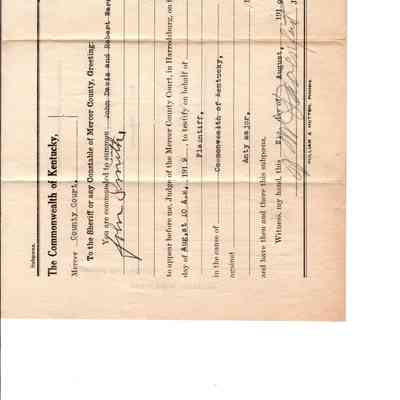 Subpœna.
The Commonwealth of Kentucky,
Mercer County Court.
To the Sheriff or any Constable of Mercer County, Greeting:
You are commanded to summon John Davis and Robert
John Smith,
to appear before me, Judge of the Mercer County Court, in Harrodsburg, on
day of Aug, at 10 A.M. 191 , to testify on behalf of
Plaintiff,
in the cause of Commonwealth of Kentucky,
against
Anty major,
and have then and there this subpœna.
Witness, my hand, this day of August, 191